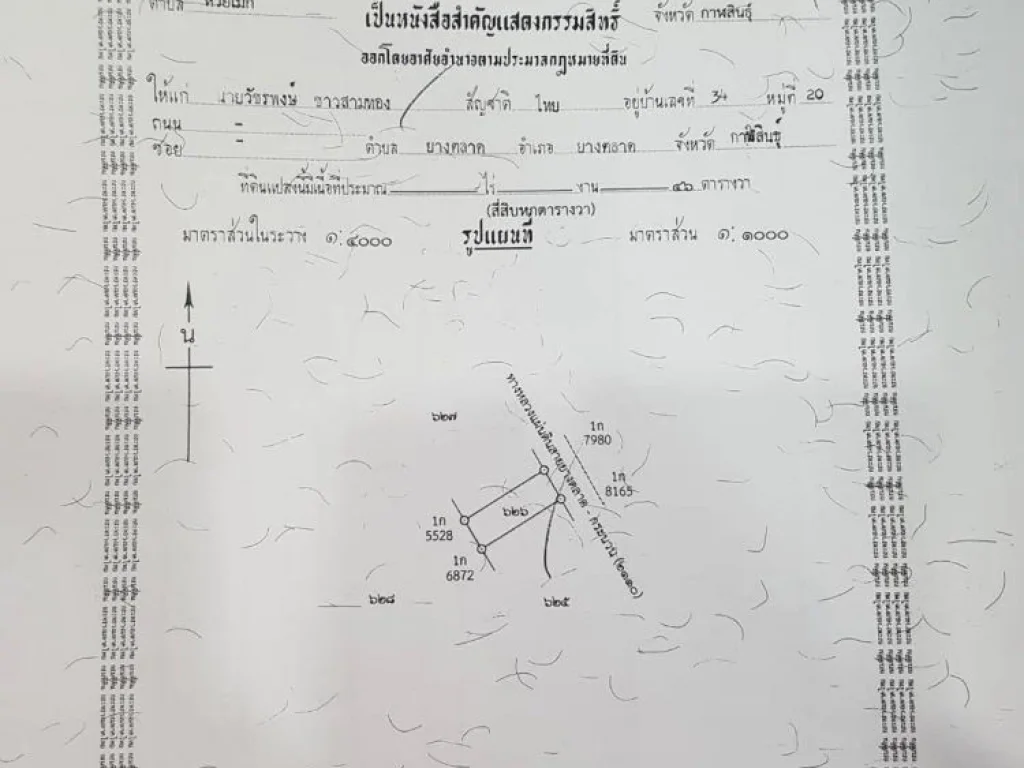 ตำบล ห้วยเม็ก
จังหวัด กาฬสินธุ์
เป็นหนังสือสำคัญแสดงกรรมสิทธิ์
ออกโดยอาศัยอำนาจตามประมวลกฎหมายที่ดิน
ให้แก่ นายวัชรพงษ์ ชาวสามทอง สัญชาติ ไทย อยู่บ้านเลขที่ 34 หมู่ที่ 20
ถนน -
ซอย - ตำบล ยางตลาด อำเภอ ยางตลาด จังหวัด กาฬสินธุ์
ที่ดินแปลงนี้มีเนื้อที่ประมาณ ไร่ งาน ๔๖ ตารางวา
(สี่สิบหกตารางวา)
มาตราส่วนในระวาง ๑:๔๐๐๐ รูปแผนที่ มาตราส่วน ๑:๑๐๐๐
น
๖๒๗
ทางหลวงแผ่นดินสายยางตลาด - กระนวน (๒๑๑๐)
1ก
7980
1ก
8165
๖๒๖
1ก
5528
1ก
6872
๖๒๘
๖๒๕